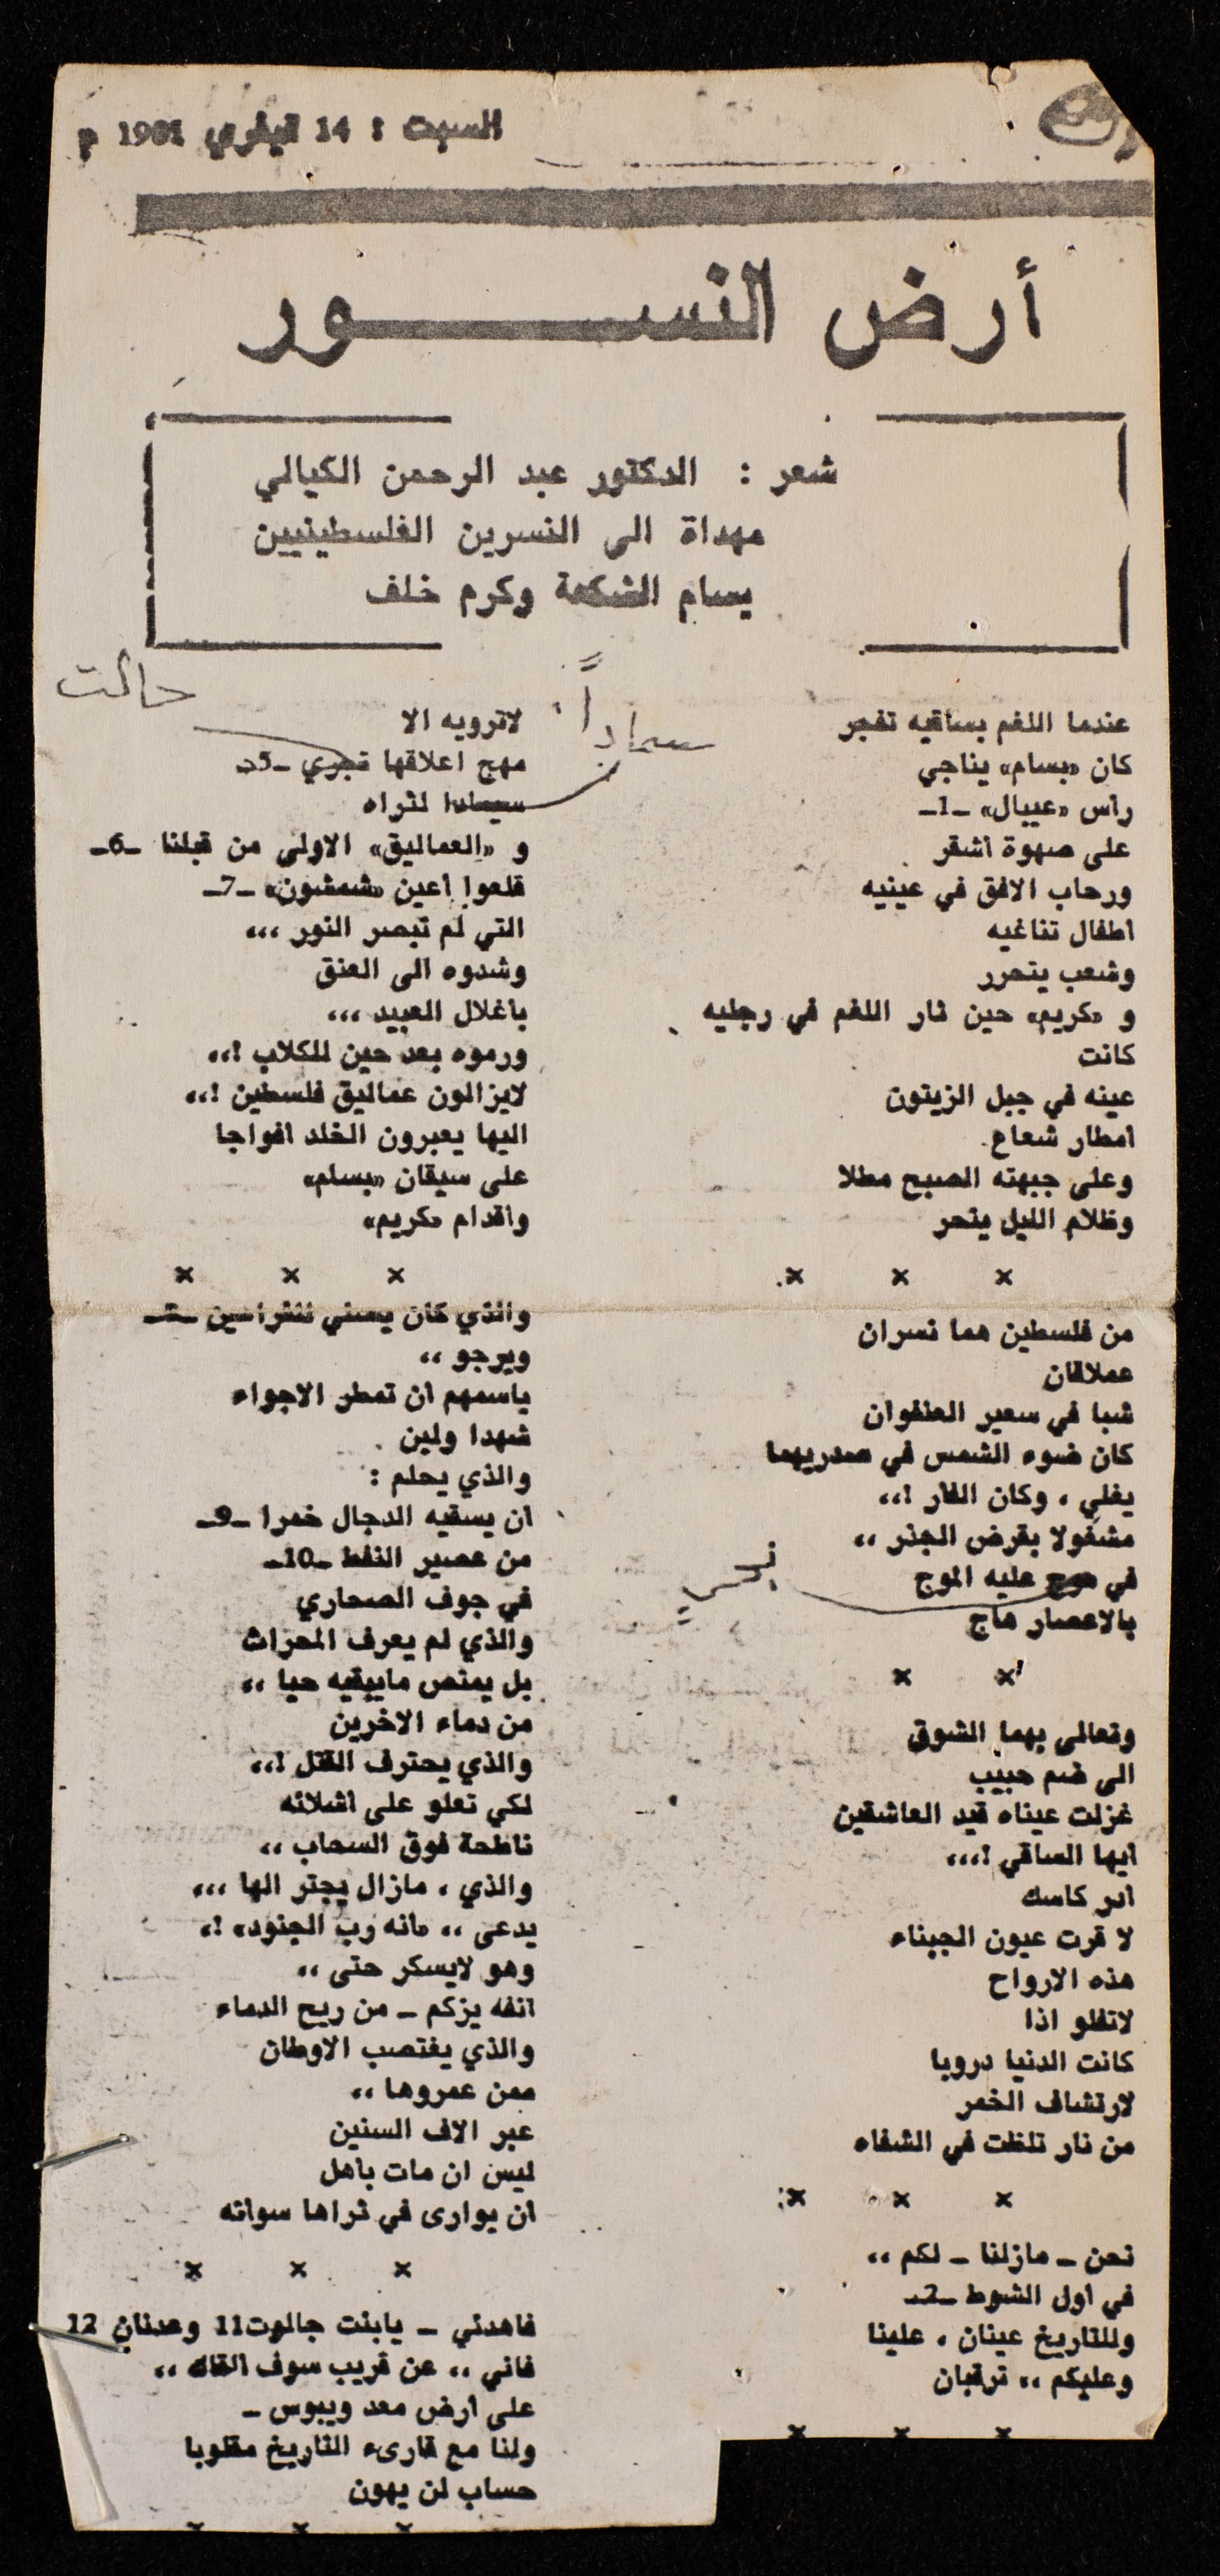 السبت : 14 فيفري 1981 م
أرض النســـور
شعر : الدكتور عبد الرحمن الكيالي
مهداة الى النسرين الفلسطينيين
بسام الشكعة وكرم خلف
عندما اللغم بساقيه تفجر
كان «بسام» يناجي
رأس «عيبال» ـ1ـ
على صهوة أشقر
ورحاب الافق في عينيه
أطفال تناغيه
وشعب يتحرر
و «كريم» حين ثار اللغم في رجليه
كانت
عينه في جبل الزيتون
أمطار شعاع
وعلى جبهته الصبح مطلا
وظلام الليل ينحر
× × ×
من فلسطين هما نسران
عملاقان
شبا في سعير العنفوان
كان ضوء الشمس في صدريهما
يغلي ، وكان الفار !،،
مشغولا بقرض الجذر ،،
في موج عليه الموج
بالاعصار هاج
× ×
وتعالى بهما الشوق
الى ضم حبيب
غزلت عيناه قيد العاشقين
أيها الساقي !،،،
أدر كاسك
لا قرت عيون الجبناء
هذه الارواح
لاتغلو اذا
كانت الدنيا دروبا
لارتشاف الخمر
من نار تلظت في الشفاه
× × ×
نحن ـ مازلنا ـ لكم ،،
في أول الشوط ـ2ـ
وللتاريخ عينان ، علينا
وعليكم ،، ترقبان
× × ×
حالت
سمادا
لاترويه الا
مهج اعلاقها تجري ـ5ـ
لثراه
و «العماليق» الاولى من قبلنا ـ6ـ
قلعوا أعين «شمشون» ـ7ـ
التي لم تبصر النور ،،،
وشدوه الى العنق
بأغلال العبيد ،،،
ورموه بعد حين للكلاب !،،
لايزالون عماليق فلسطين !،،
اليها يعبرون الخلد أفواجا
على سيقان «بسام»
وأقدام «كريم»
× × ×
والذي كان يصلي
ويرجو ،،
باسمهم أن تمطر الاجواء
شهدا ولبن
والذي يحلم :
أن يسقيه الدجال خمرا ـ9ـ
من عصير النفط ـ10ـ
في جوف الصحاري
والذي لم يعرف المحراث
بل يمتص مايبقيه حيا ،،
من دماء الاخرين
والذي يحترف القتل !،،
لكي تعلو على أشلائه
ناطحة فوق السحاب ،،
والذي ، مازال يجتر الها ،،،
يدعى ،، «انه رب الجنود» !،
وهو لايسكر حتى ،،
أنفه يزكم ـ من ريح الدماء
والذي يغتصب الاوطان
ممن عمروها ،،
عبر الاف السنين
ليس ان مات بأهل
أن يوارى في ثراها سواته
× × ×
فاهدئي ـ يابنت جالوت11 وعدنان 12
فاني ،، عن قريب سوف القاك ،،
على أرض معد ويبوس ـ
ولنا مع قارىء التاريخ مقلوبا
حساب لن يهون
× × ×